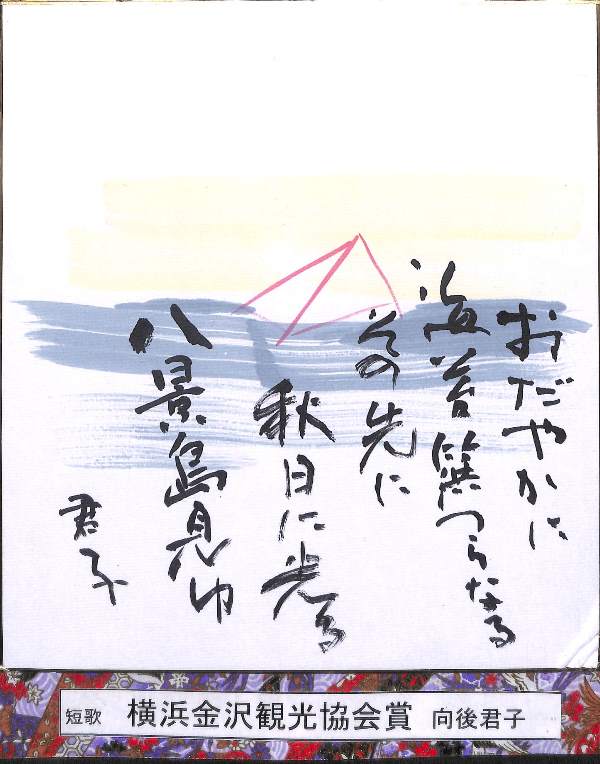 おだやかに
海苔篊つらなる
その先に
秋日に光る
八景島見ゆ
君子
短歌 横浜金沢観光協会賞 向後君子